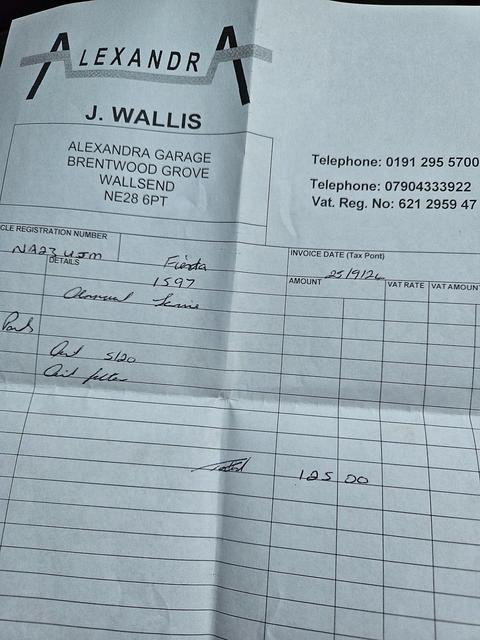 ALEXANDRA
J. WALLIS
ALEXANDRA GARAGE
BRENTWOOD GROVE
WALLSEND
NE28 6PT
Telephone: 0191 295 5700
Telephone: 07904333922
Vat. Reg. No: 621 2959 47
CLE REGISTRATION NUMBER
INVOICE DATE (Tax Point)
NA23 UJM
Fiesta
25/9/26
DETAILS
1597
AMOUNT
VAT RATE
VAT AMOUN
Annual Service
Parts
5/20
Oil filter
Total 125 00